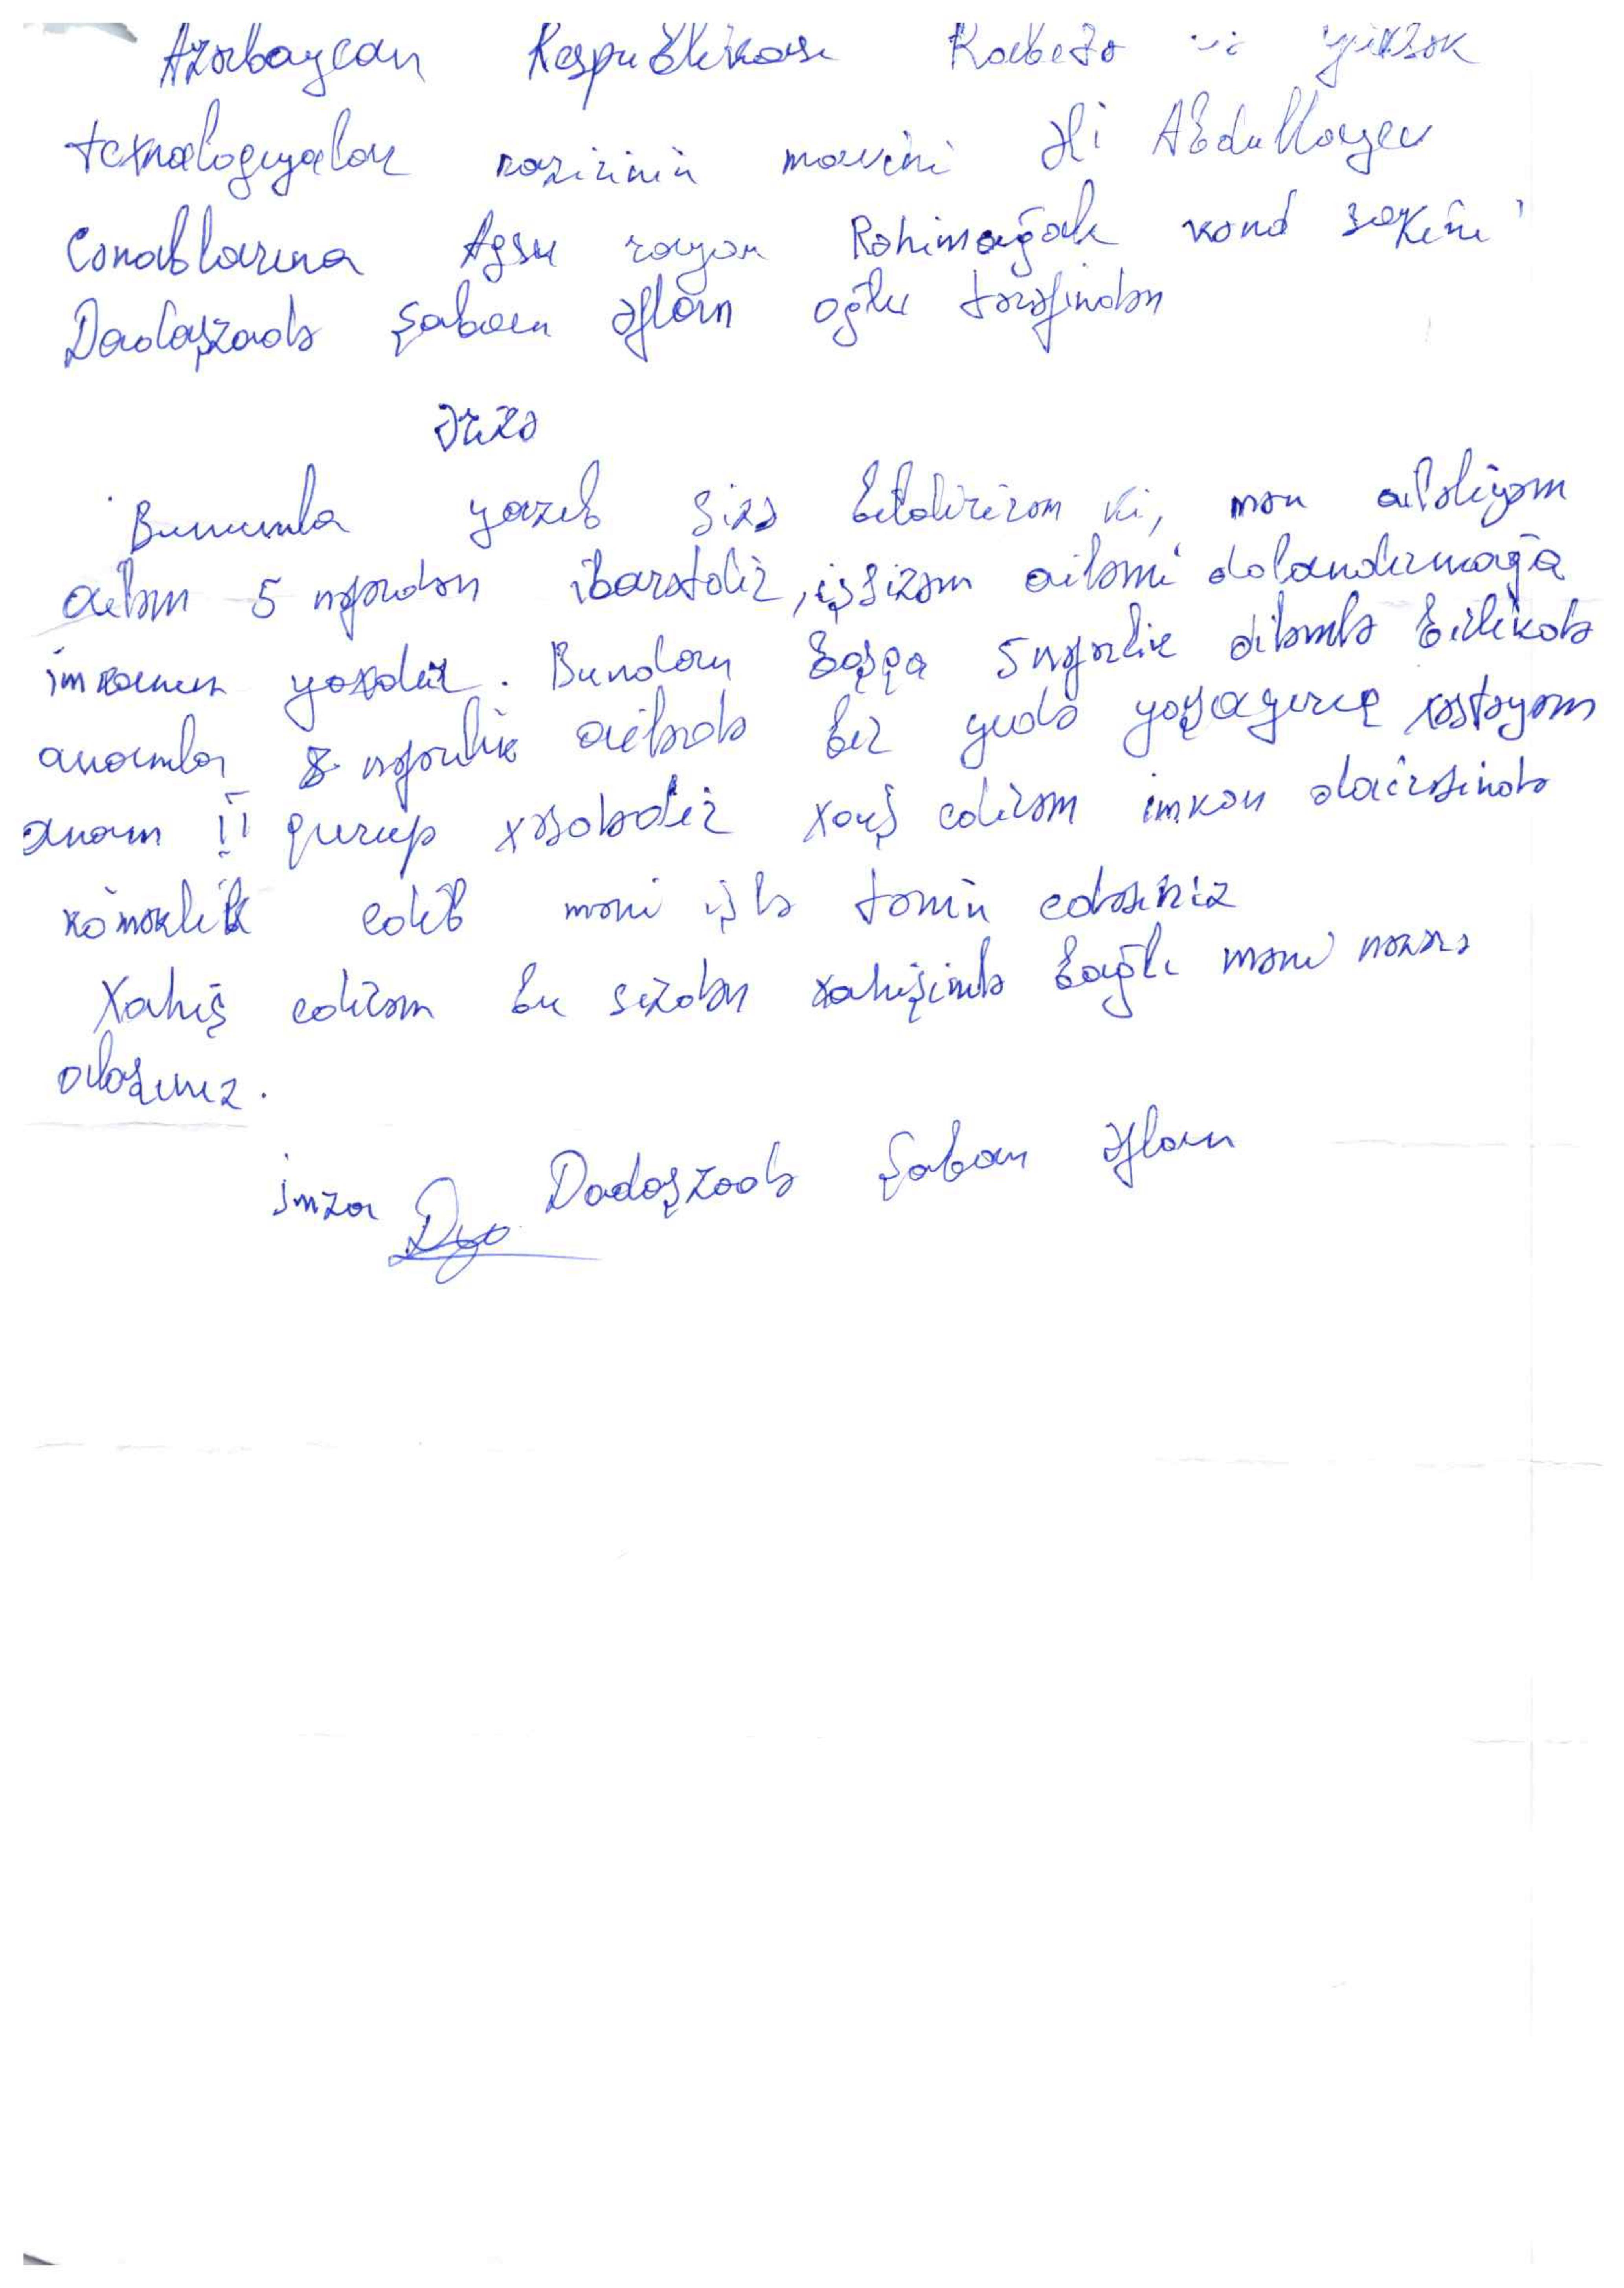 Azərbaycan Respublikası Rabitə və yüksək
texnalogiyalar nazirinin mavini Əli Abdullayev
Cənablarına Agsu rayon Rəhimağalı kənd sakini
Dadaşzadə Şaban Əflan oğlu tərəfindən
Ərizə
Bununla yazıb sizə bildirirəm ki, mən ailəliyəm
ailəm 5 nəfərdən ibarətdir, işsizəm ailəmi dolandırmağa
imkanım yoxdur. Bundan başqa 5 nəfərlik ailəmlə birlikdə
anamla 8 nəfərlik ailədə bir yerdə yaşayırıq xəstəyəm
anam II qurup xəsabdir xayiş edirəm imkan dairəsində
köməklik edib məni işlə təmin edəsiniz
Xahiş edirəm bu sizdən xahişimlə bağlı məni nəzərə
alasınız.
imza Dadaşzadə Şaban Əflan